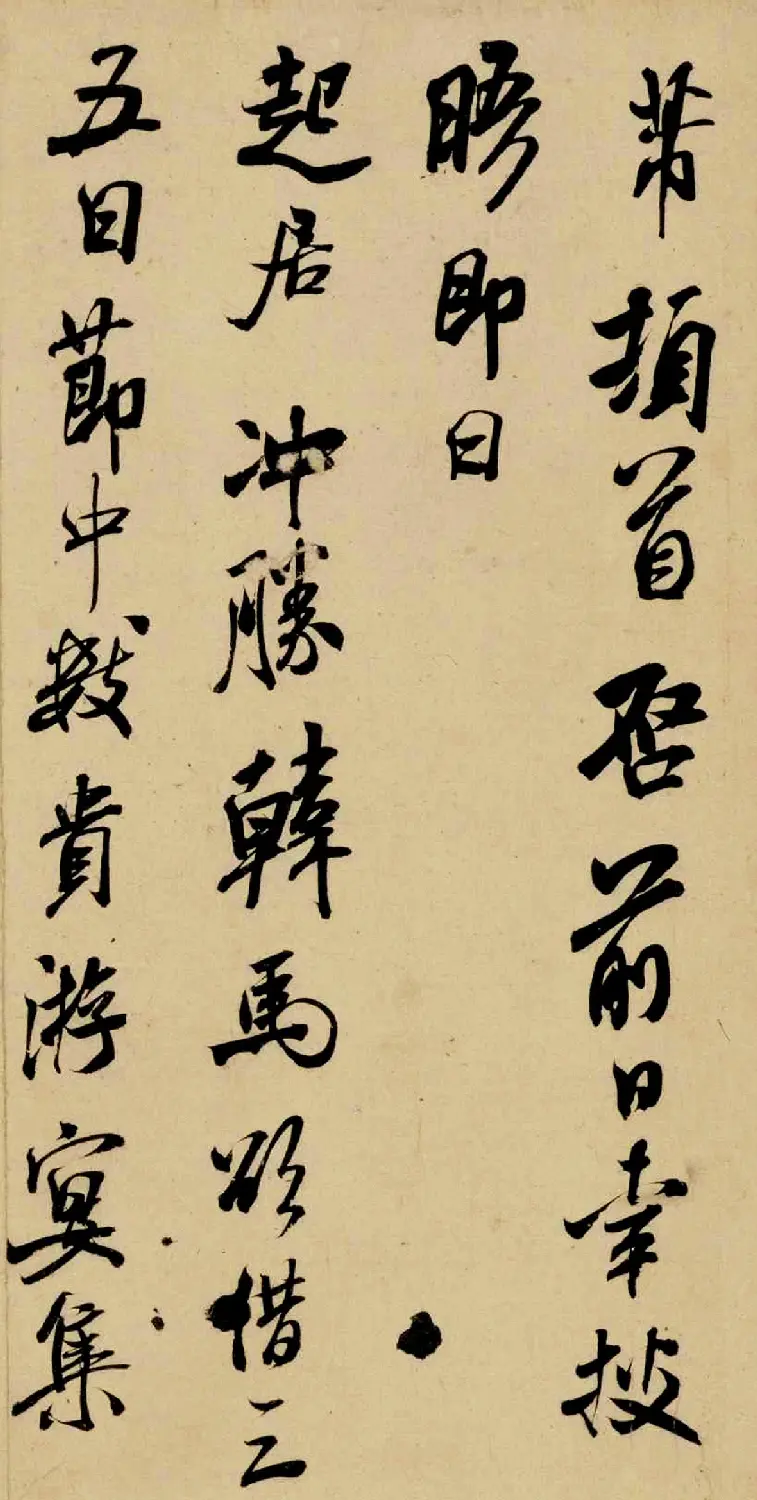 芾頓首啓前日幸披
晤即日
起居冲勝韓馬欲借三
五日節中數貴游宴集